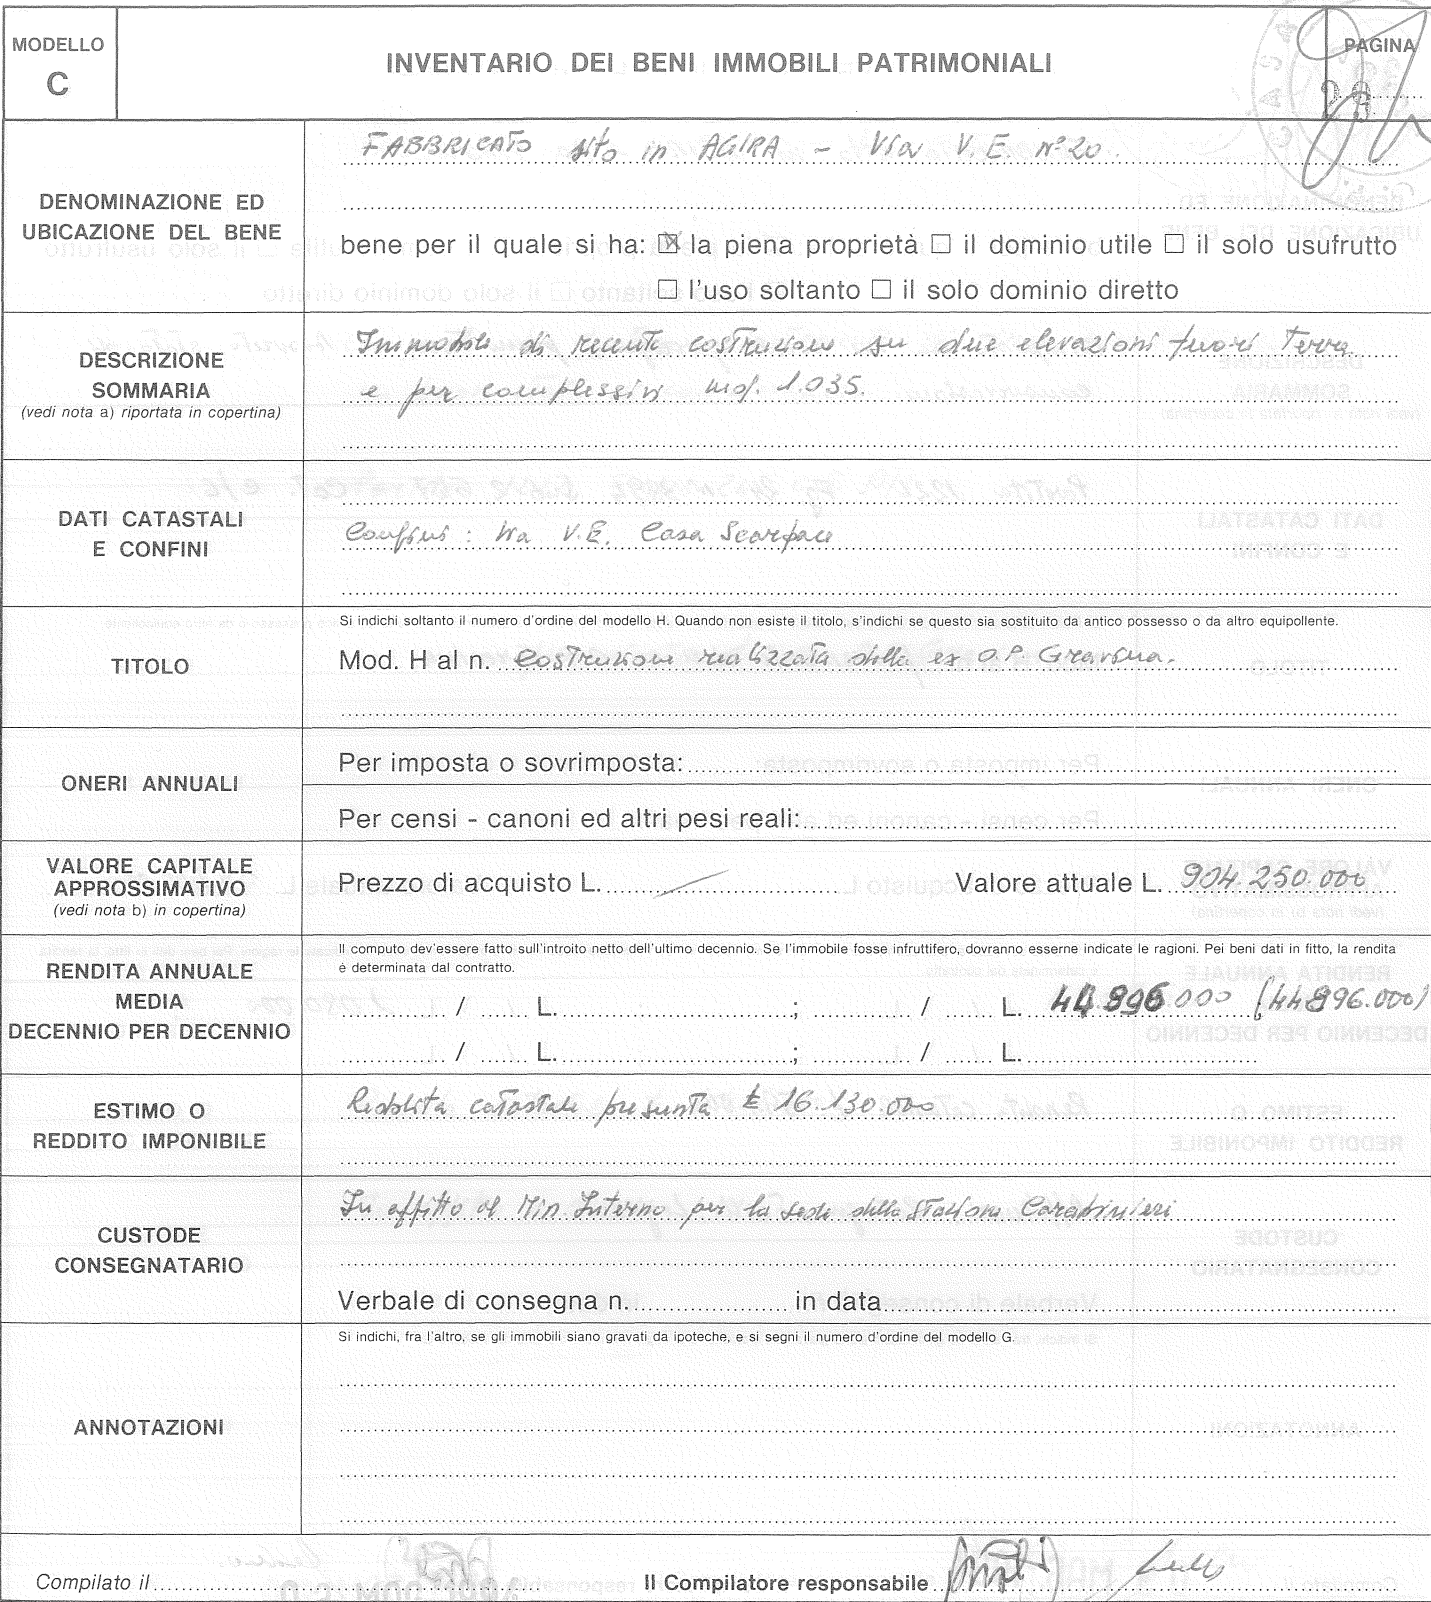 MODELLO
C
INVENTARIO DEI BENI IMMOBILI PATRIMONIALI
PAGINA
23
DENOMINAZIONE ED
UBICAZIONE DEL BENE
FABBRICATO sito in AGIRA - Via V.E. n° 20.
bene per il quale si ha: ☒ la piena proprietà ☐ il dominio utile ☐ il solo usufrutto
☐ l'uso soltanto ☐ il solo dominio diretto
DESCRIZIONE
SOMMARIA
(vedi nota a) riportata in copertina)
Immobile di recente costruzione su due elevazioni fuori terra
e per complessivi mq. 1.035.
DATI CATASTALI
E CONFINI
Confini: Via V.E. Casa Scarpaci
TITOLO
Si indichi soltanto il numero d'ordine del modello H. Quando non esiste il titolo, s'indichi se questo sia sostituito da antico possesso o da altro equipollente.
Mod. H al n. Costruzione realizzata dalla ex O.P. Gravina.
ONERI ANNUALI
Per imposta o sovrimposta:
Per censi - canoni ed altri pesi reali:
VALORE CAPITALE
APPROSSIMATIVO
(vedi nota b) in copertina)
Prezzo di acquisto L. Valore attuale L. 904.250.000
RENDITA ANNUALE
MEDIA
DECENNIO PER DECENNIO
Il computo dev'essere fatto sull'introito netto dell'ultimo decennio. Se l'immobile fosse infruttifero, dovranno esserne indicate le ragioni. Pei beni dati in fitto, la rendita
è determinata dal contratto.
/ L. ; / L. 44.896.000 (44896.000)
/ L. ; / L.
ESTIMO O
REDDITO IMPONIBILE
Rendita catastale presunta £ 16.130.000
CUSTODE
CONSEGNATARIO
In affitto al Min. Interno per la sede della Stazione Carabinieri
Verbale di consegna n. in data
ANNOTAZIONI
Si indichi, fra l'altro, se gli immobili siano gravati da ipoteche, e si segni il numero d'ordine del modello G.
Compilato il Il Compilatore responsabile